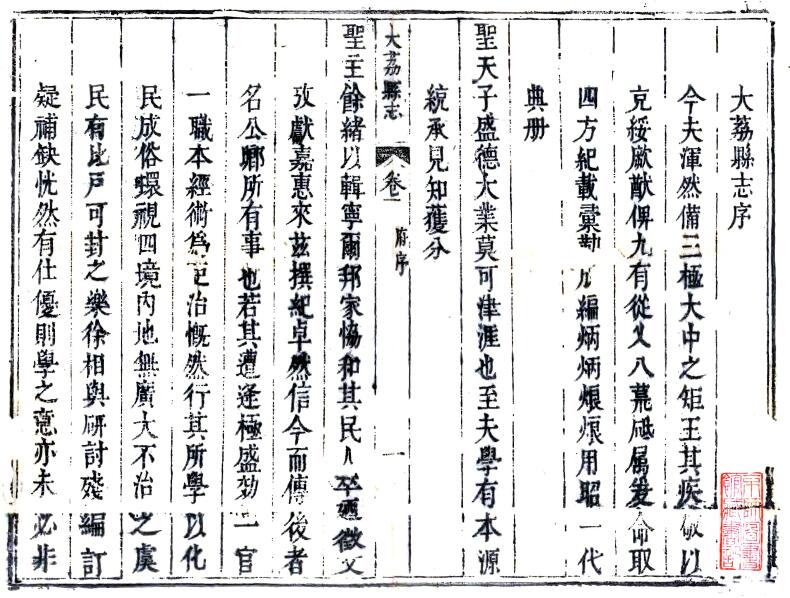 大荔縣志序
今夫渾然備三極大中之矩王其疾敬以
克綏厥猷俾九有從乂八荒砥属爰命取
四方紀載彙勒成編炳炳烺烺用昭一代
典册
聖天子盛德大業莫可津涯也至夫學有本源
統承見知獲分
大荔縣志
卷一
府序
一
聖主餘緒以輯寧爾邦家恊和其民人卒迺徵文
攷獻嘉惠來茲撰紀卓然信今而傳後者
名公鄉所有事也若其遭逢極盛効一官
一職本經術爲吏治慨然行其所學以化
民成俗環視四境內地無廣大不治之虞
民有比戶可封之樂徐相與研討殘編訂
疑補缺恍然有仕優則學之意亦未必非